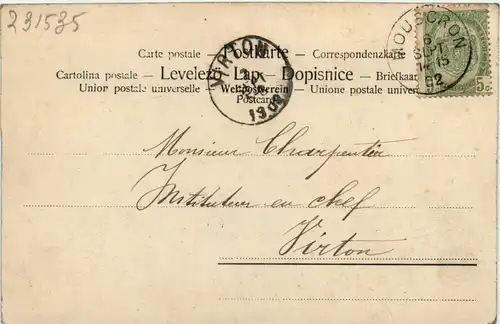 231535
Carte postale — Postkarte — Correspondenzkarte
Cartolina postale — Levelező-Lap — Dopisnice — Briefkaart
Union postale universelle — Weltpostverein — Unione postale univer
Postcard
VIRTON
1902
MOUSCRON
6
SEPT
14-15
02
5c
Monsieur Charpentier
Instituteur en chef
Virton